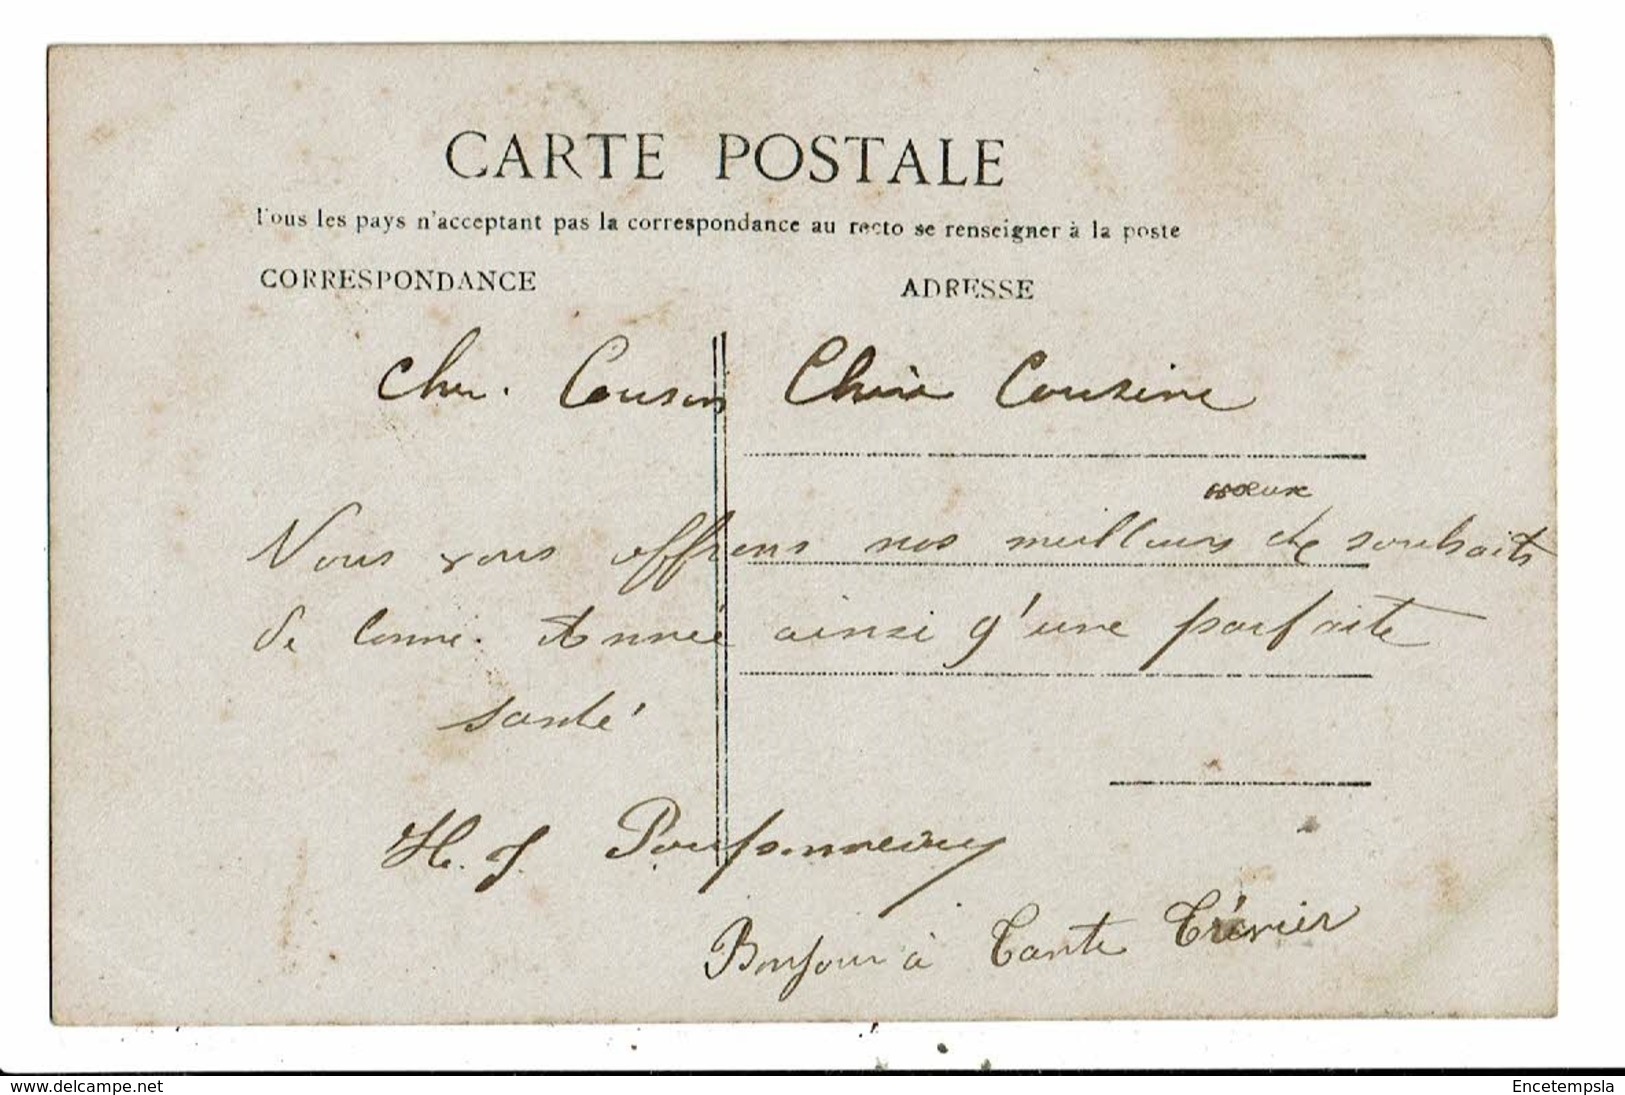 CARTE POSTALE
Tous les pays n'acceptant pas la correspondance au recto se renseigner à la poste
CORRESPONDANCE
ADRESSE
Cher. Cousin Chère Cousine
vœux
Nous vous offrons nos meilleurs de souhaits
de bonne. Année ainsi q'une parfaite
santé
H. J.
Bonjour à Tante
www.delcampe.net
Encetempsla